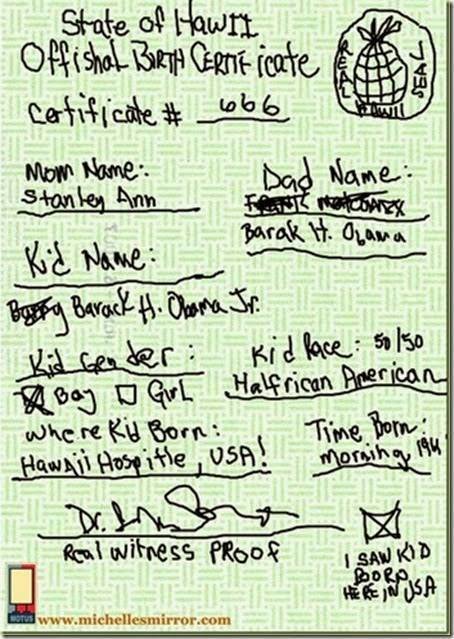 State of HAWII
Offishal BIRTH CERTIFicate
REAL HAWII SEAL
Certificate # 666
Mom Name:
Stanley Ann
Dad Name:
Barak H. Obama
Kid Name:
Barack H. Obama Jr.
Kid Gender:
Boy Girl
Kid Race: 50/50
Halfrican American
Where Kid Born:
Hawaii Hospitle, USA!
Time Born:
morning, 1961
Dr.
Real Witness PROOF
I SAW KID
BORN
HERE IN USA
MOTUS
www.michellesmirror.com